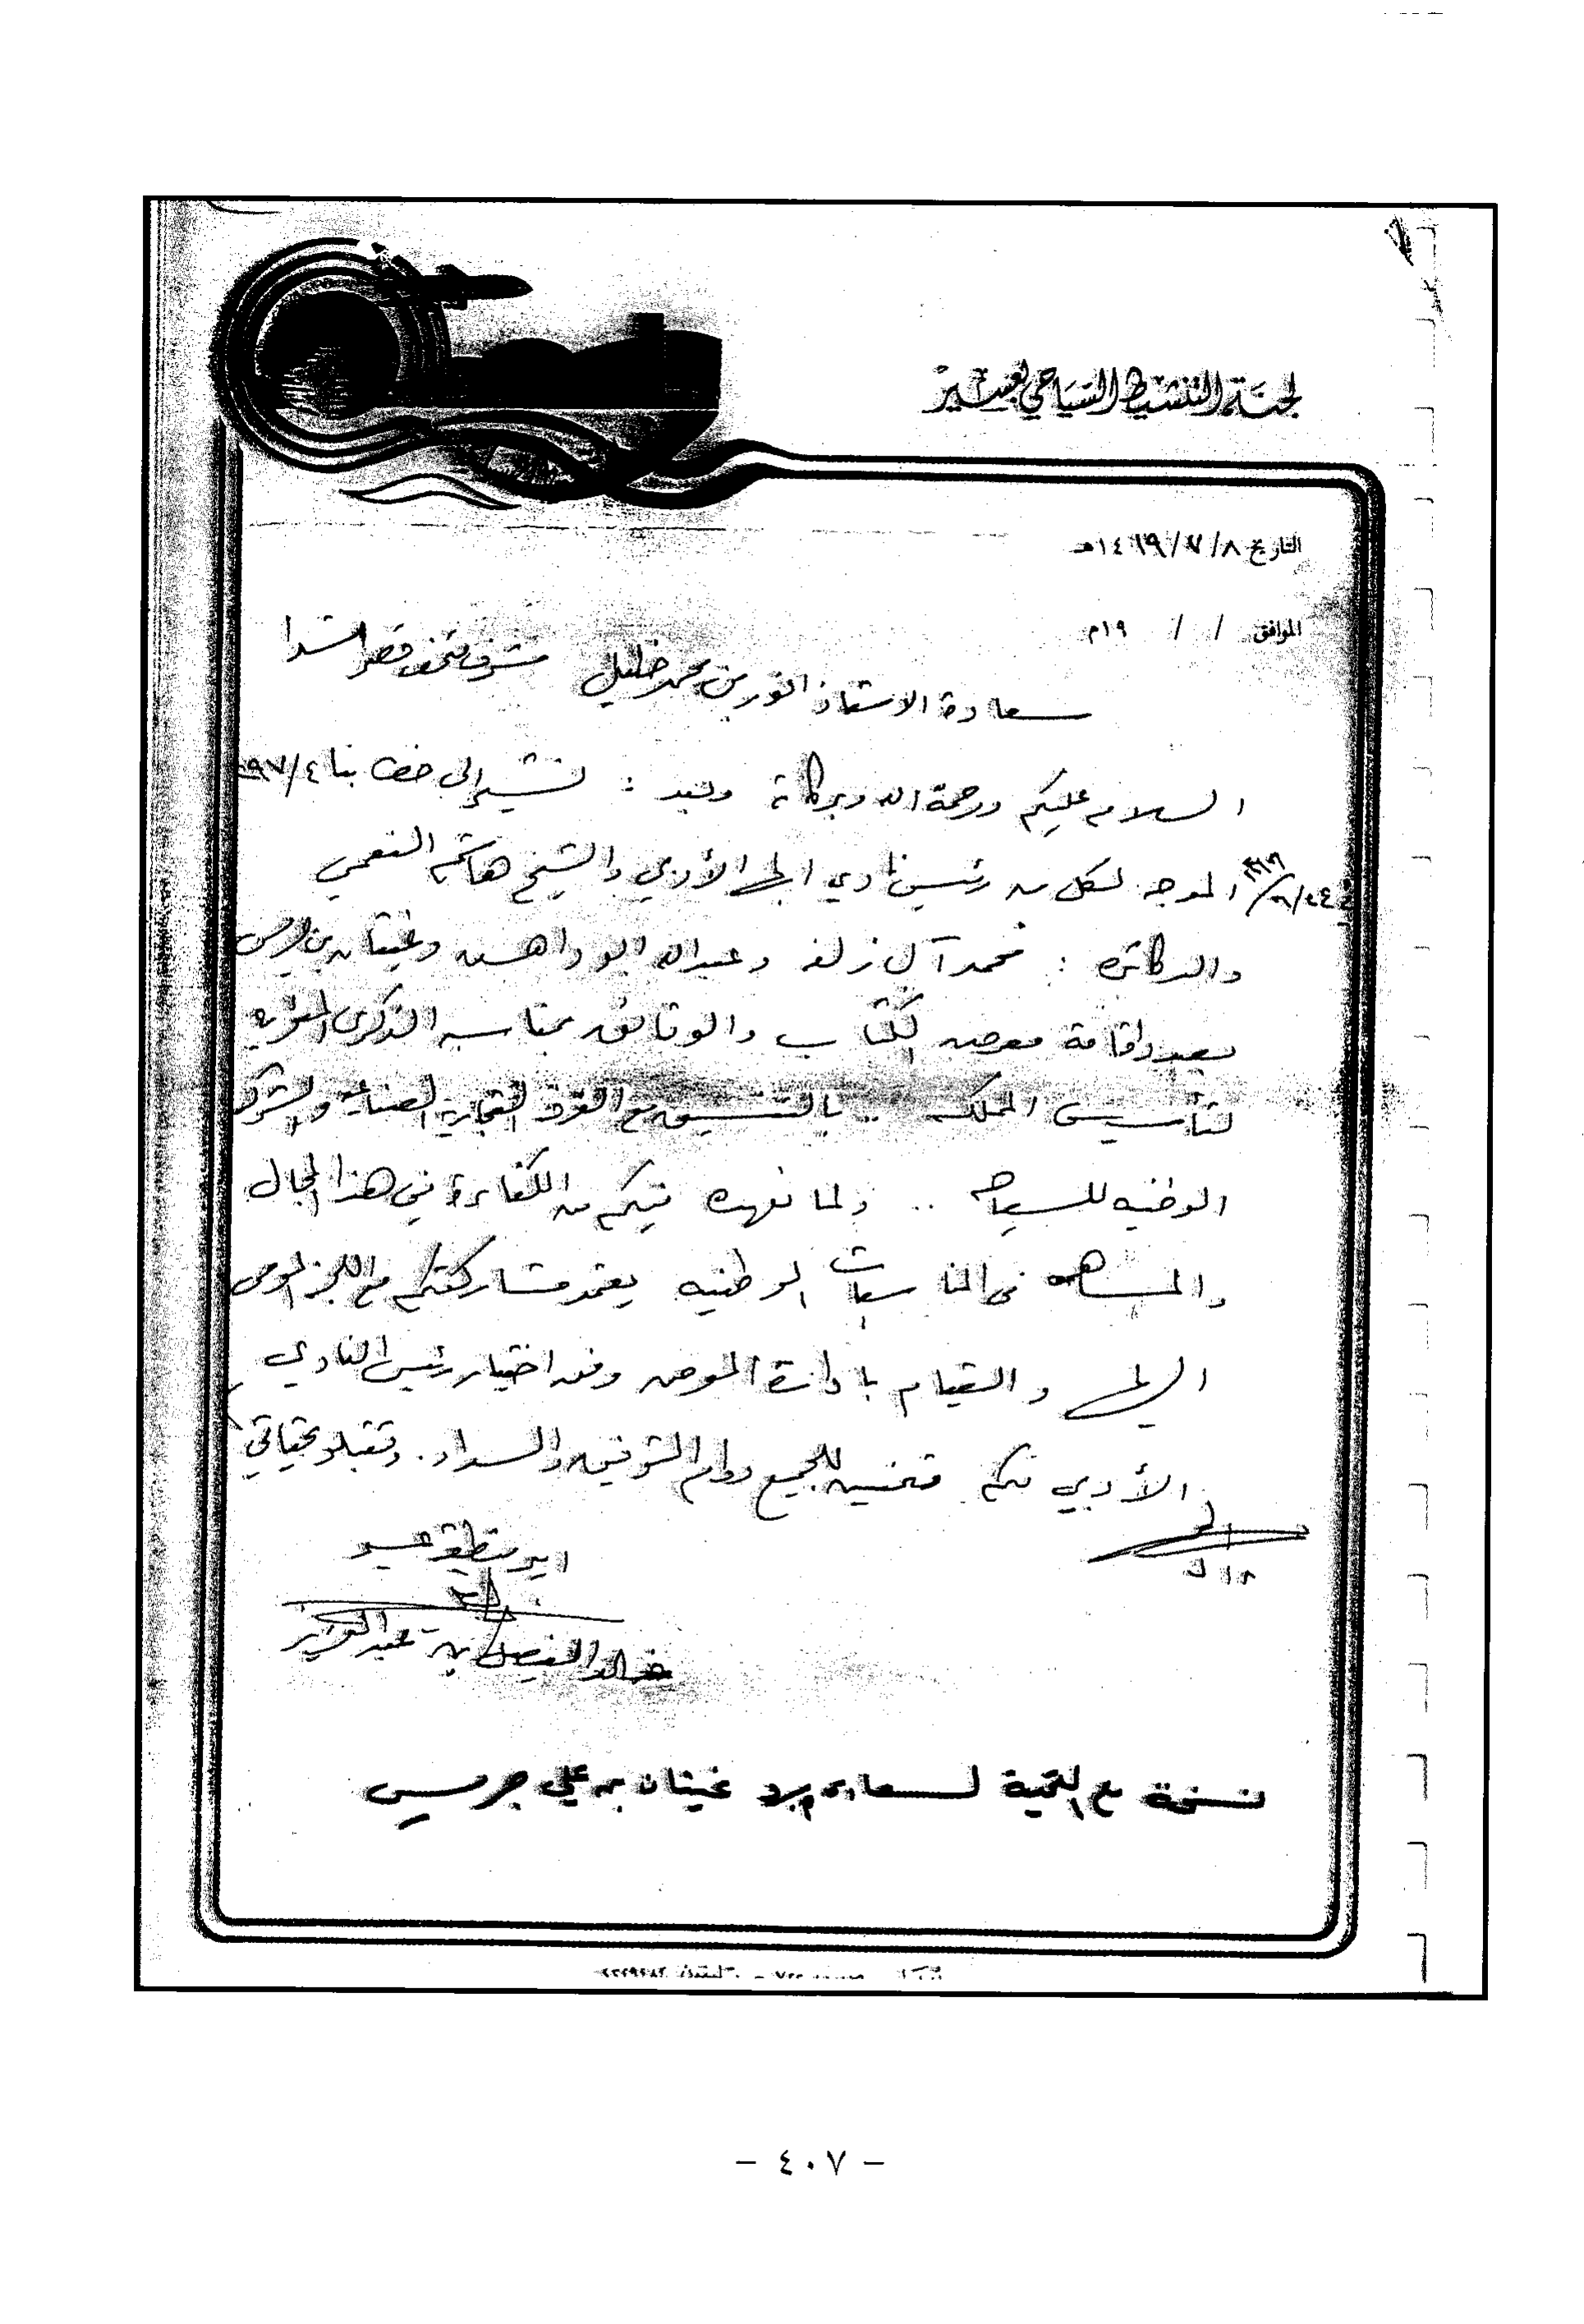 لجنة التنشيط السياحي بعسير
التاريخ ٨/ ٧/ ١٤١٩هـ
الموافق / / ١٩م
سعادة الاستاذ انور بن محمد خليل مشرف متحف قصر شدا
السلام عليكم ورحمة الله وبركاته وبعد : نشير الى خطابنا
الموجه لكل من رئيس نادي ابها الأدبي والشيخ هاشم النعمي
والدكاترة : محمد آل زلفه وعبدالله ابو داهش وغيثان بن جريس
بصدد اقامة معرض الكتاب والوثائق بمناسبة الذكرى المئويه
لتأسيس المملكه .. بالتنسيق مع الغرفه التجاريه الصناعيه والشركه
الوطنيه للسياحه .. ولما نعهده فيكم من الكفاءة في هذا المجال
والمساهمه في المناسبات الوطنيه يعتمد مشاركتكم مع اللجنه الموضحه
والقيام بادارة المعرض وفق اختيار رئيس النادي
الأدبي لكم متمنين للجميع دوام التوفيق والسداد . وتقبلو تحياتي
امير منطقة عسير
خالد الفيصل بن عبدالعزيز
نسخة مع التحية لسعادة غيثان بن علي جريس
- ٤٠٧ -